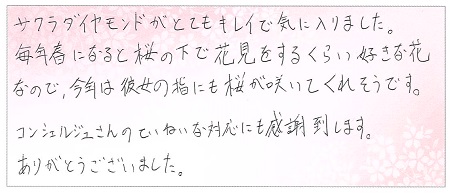 サクラダイヤモンドがとてもキレイで気に入りました。
毎年春になると桜の下で花見をするくらい好きな花
なので、今年は彼女の指にも桜が咲いてくれそうです。
コンシェルジュさんのていねいな対応にも感謝致します。
ありがとうございました。